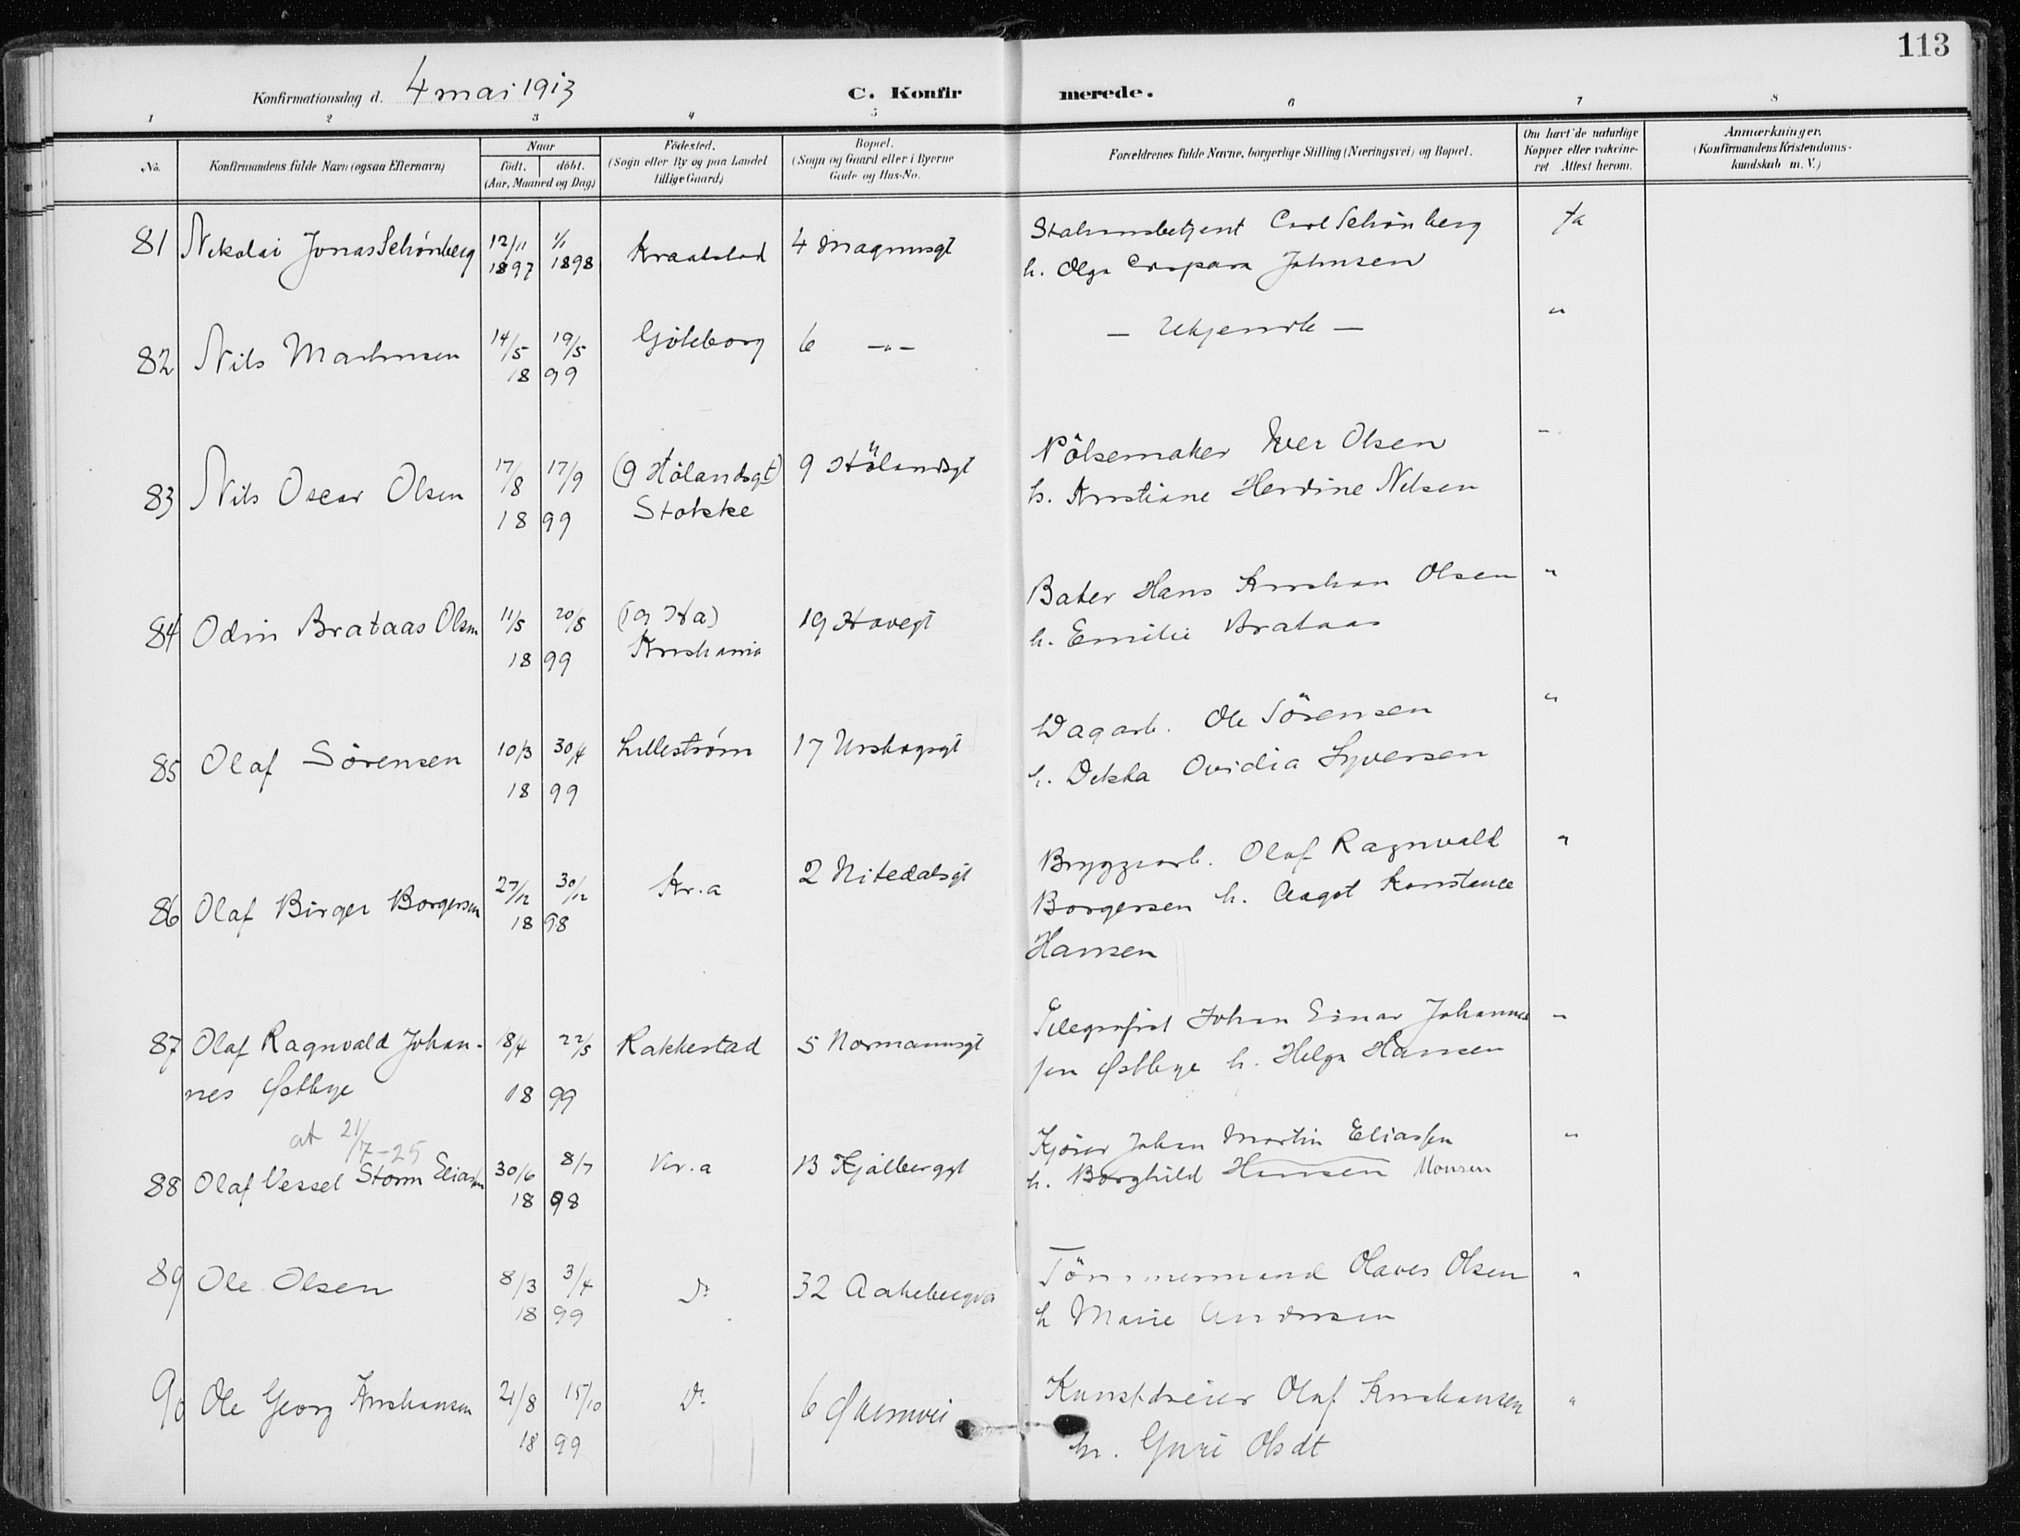 113
Konfirmationsdag d. 4 mai 1913 C. Konfirmerede.
1 2 3 4 5 6 7 8
No. Konfirmandens fulde Navn (ogsaa Efternavn) Naar født. døbt. (Aar, Maaned og Dag) Fødested. (Sogn eller By og paa Landet tillige Gaard) Bopæl. (Sogn og Gaard eller i Byerne Gade og Hus-No. Forældrenes fulde Navne, borgerlige Stilling (Næringsvei) og Bopæl. Om havt de naturlige Kopper eller vakcineret. Attest herom. Anmærkninger. (Konfirmandens Kristendomskundskab m. V.)
81 Nikolai Jonas Schønberg 12/11 1897 1/1 1898 Kraakstad 4 Magnusgt Stationsbetjent Carl Schønberg
h. Olga Johnsen
82 Nils Martinsen 14/5 19/5 1899 Göteborg 6 —"— — Ukjendte — "
83 Nils Oscar Olsen 17/8 17/9 1899 (9 Hølandsgt) Stokke 9 Hölandsgt Pölsemaker Iver Olsen "
h. Kristiane Hardine Nilsen
84 Odin Brataas Olsen 11/5 20/8 1899 Kristiania 19 Havegt Baker Hans Kristian Olsen "
h. Emilie Brataas
85 Olaf Sørensen 10/3 30/4 1899 Lillestrøm 17 Urskogsgt Dagarb. Ole Sörensen "
h. Ovidia Syversen
86 Olaf Birger Borgersen 27/12 30/12 1898 Kr.a 2 Nitedalsgt Bryggiarb. Olaf Ragnvald "
Borgersen h. Aagot Konstance
Hansen
87 Olaf Ragnvald Johan- 18/4 22/5 1899 Rakkestad 5 Normannsgt Telegrafist Johan Einar Johannes "
nes Østbye sen Østbye h. Helga Hansen
at 21/7-25
88 Olaf Vessel Storm Eliassen 30/6 8/7 1898 Kr.a 13 Kjølberggt Kjører Johan Martin Eliassen "
h. Borghild Hansen Monsen
89 Ole Olsen 8/3 3/4 1899 Do 32 Aakebergvei Tömmermand Olaves Olsen "
h Marie Andersen
90 Ole Georg Kristiansen 21/8 15/10 1899 Do 6 Økernvei Kunstdreier Olaf Kristiansen "
h. Guri Olsdt